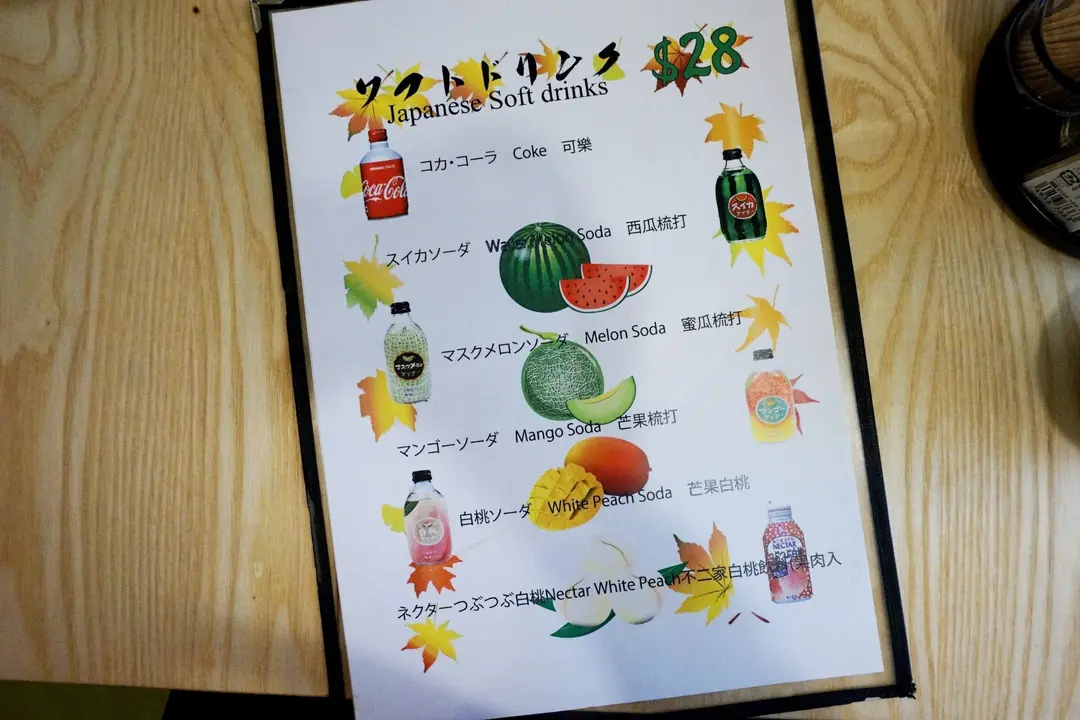 ソフトドリンク $28
Japanese Soft drinks
Coca-Cola
コカ・コーラ Coke 可樂
スイカ
スイカソーダ Water Melon Soda 西瓜梳打
マスクメロン
マスクメロンソーダ Melon Soda 蜜瓜梳打
マンゴー
マンゴーソーダ Mango Soda 芒果梳打
白桃ソーダ White Peach Soda 芒果白桃
NECTAR
ネクターつぶつぶ白桃Nectar White Peach不二家白桃飲料(果肉入